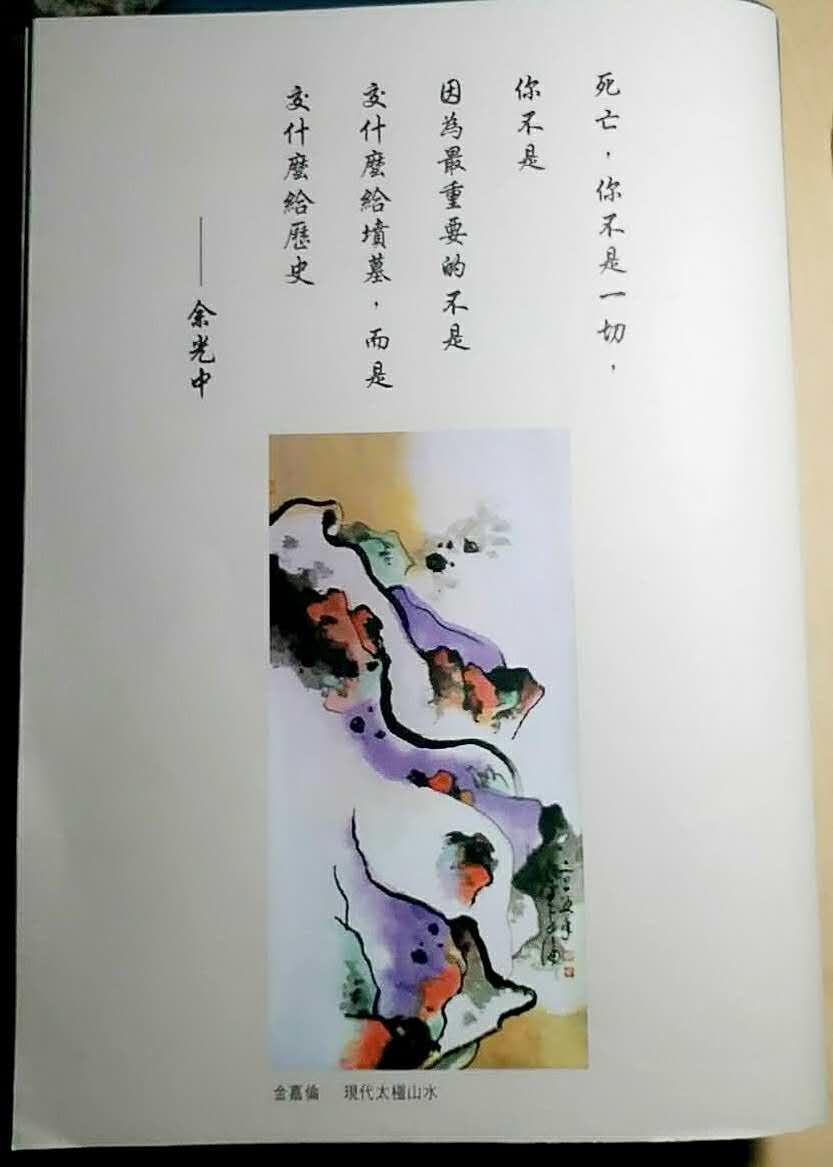 死亡，你不是一切，
你不是
因為最重要的不是
交什麼給墳墓，而是
交什麼給歷史
——余光中
金嘉倫 現代太極山水